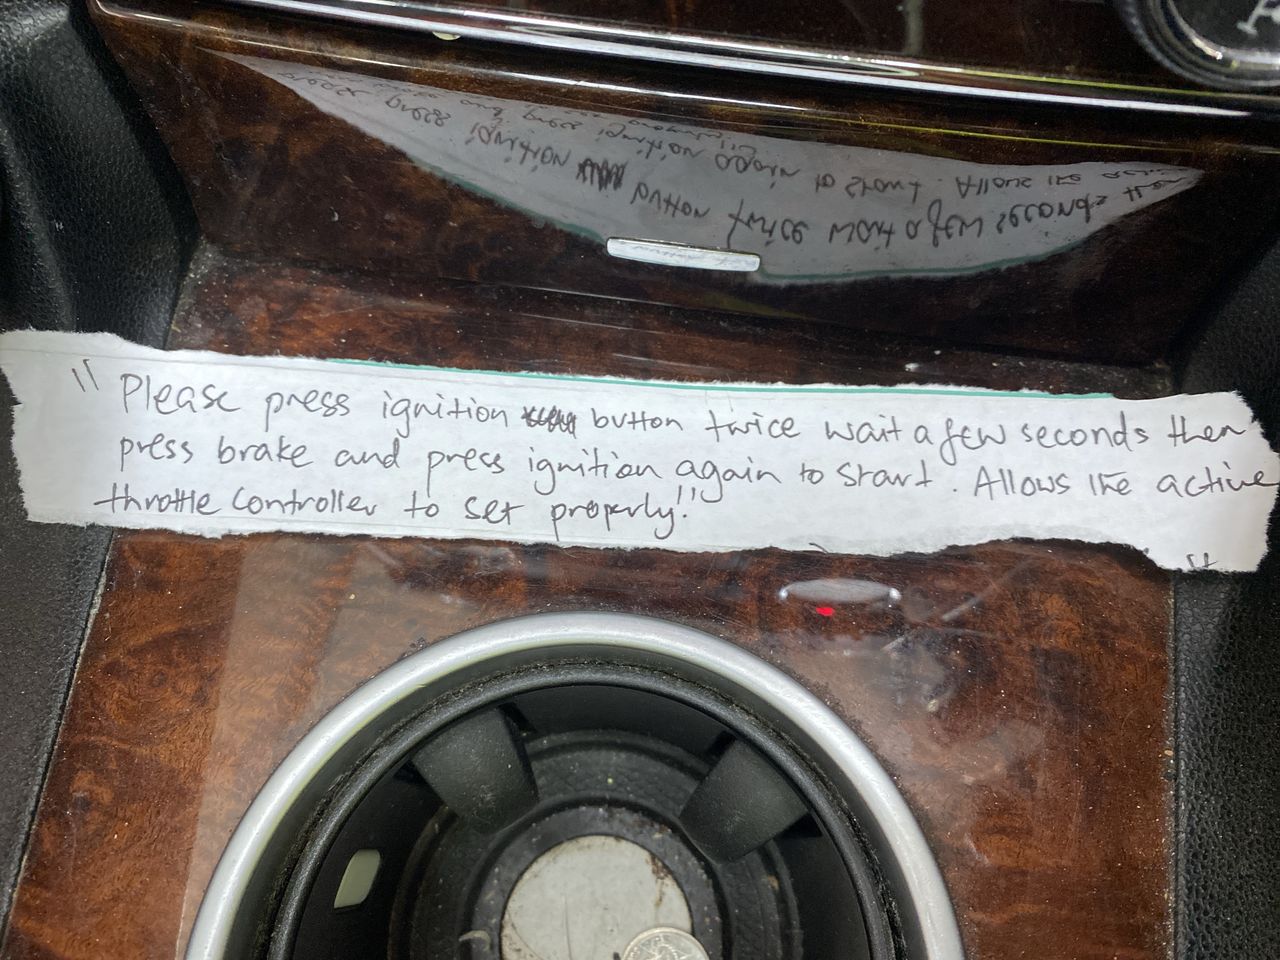 "Please press ignition button twice wait a few seconds then
press brake and press ignition again to start. Allows the active
throttle controller to set properly!"